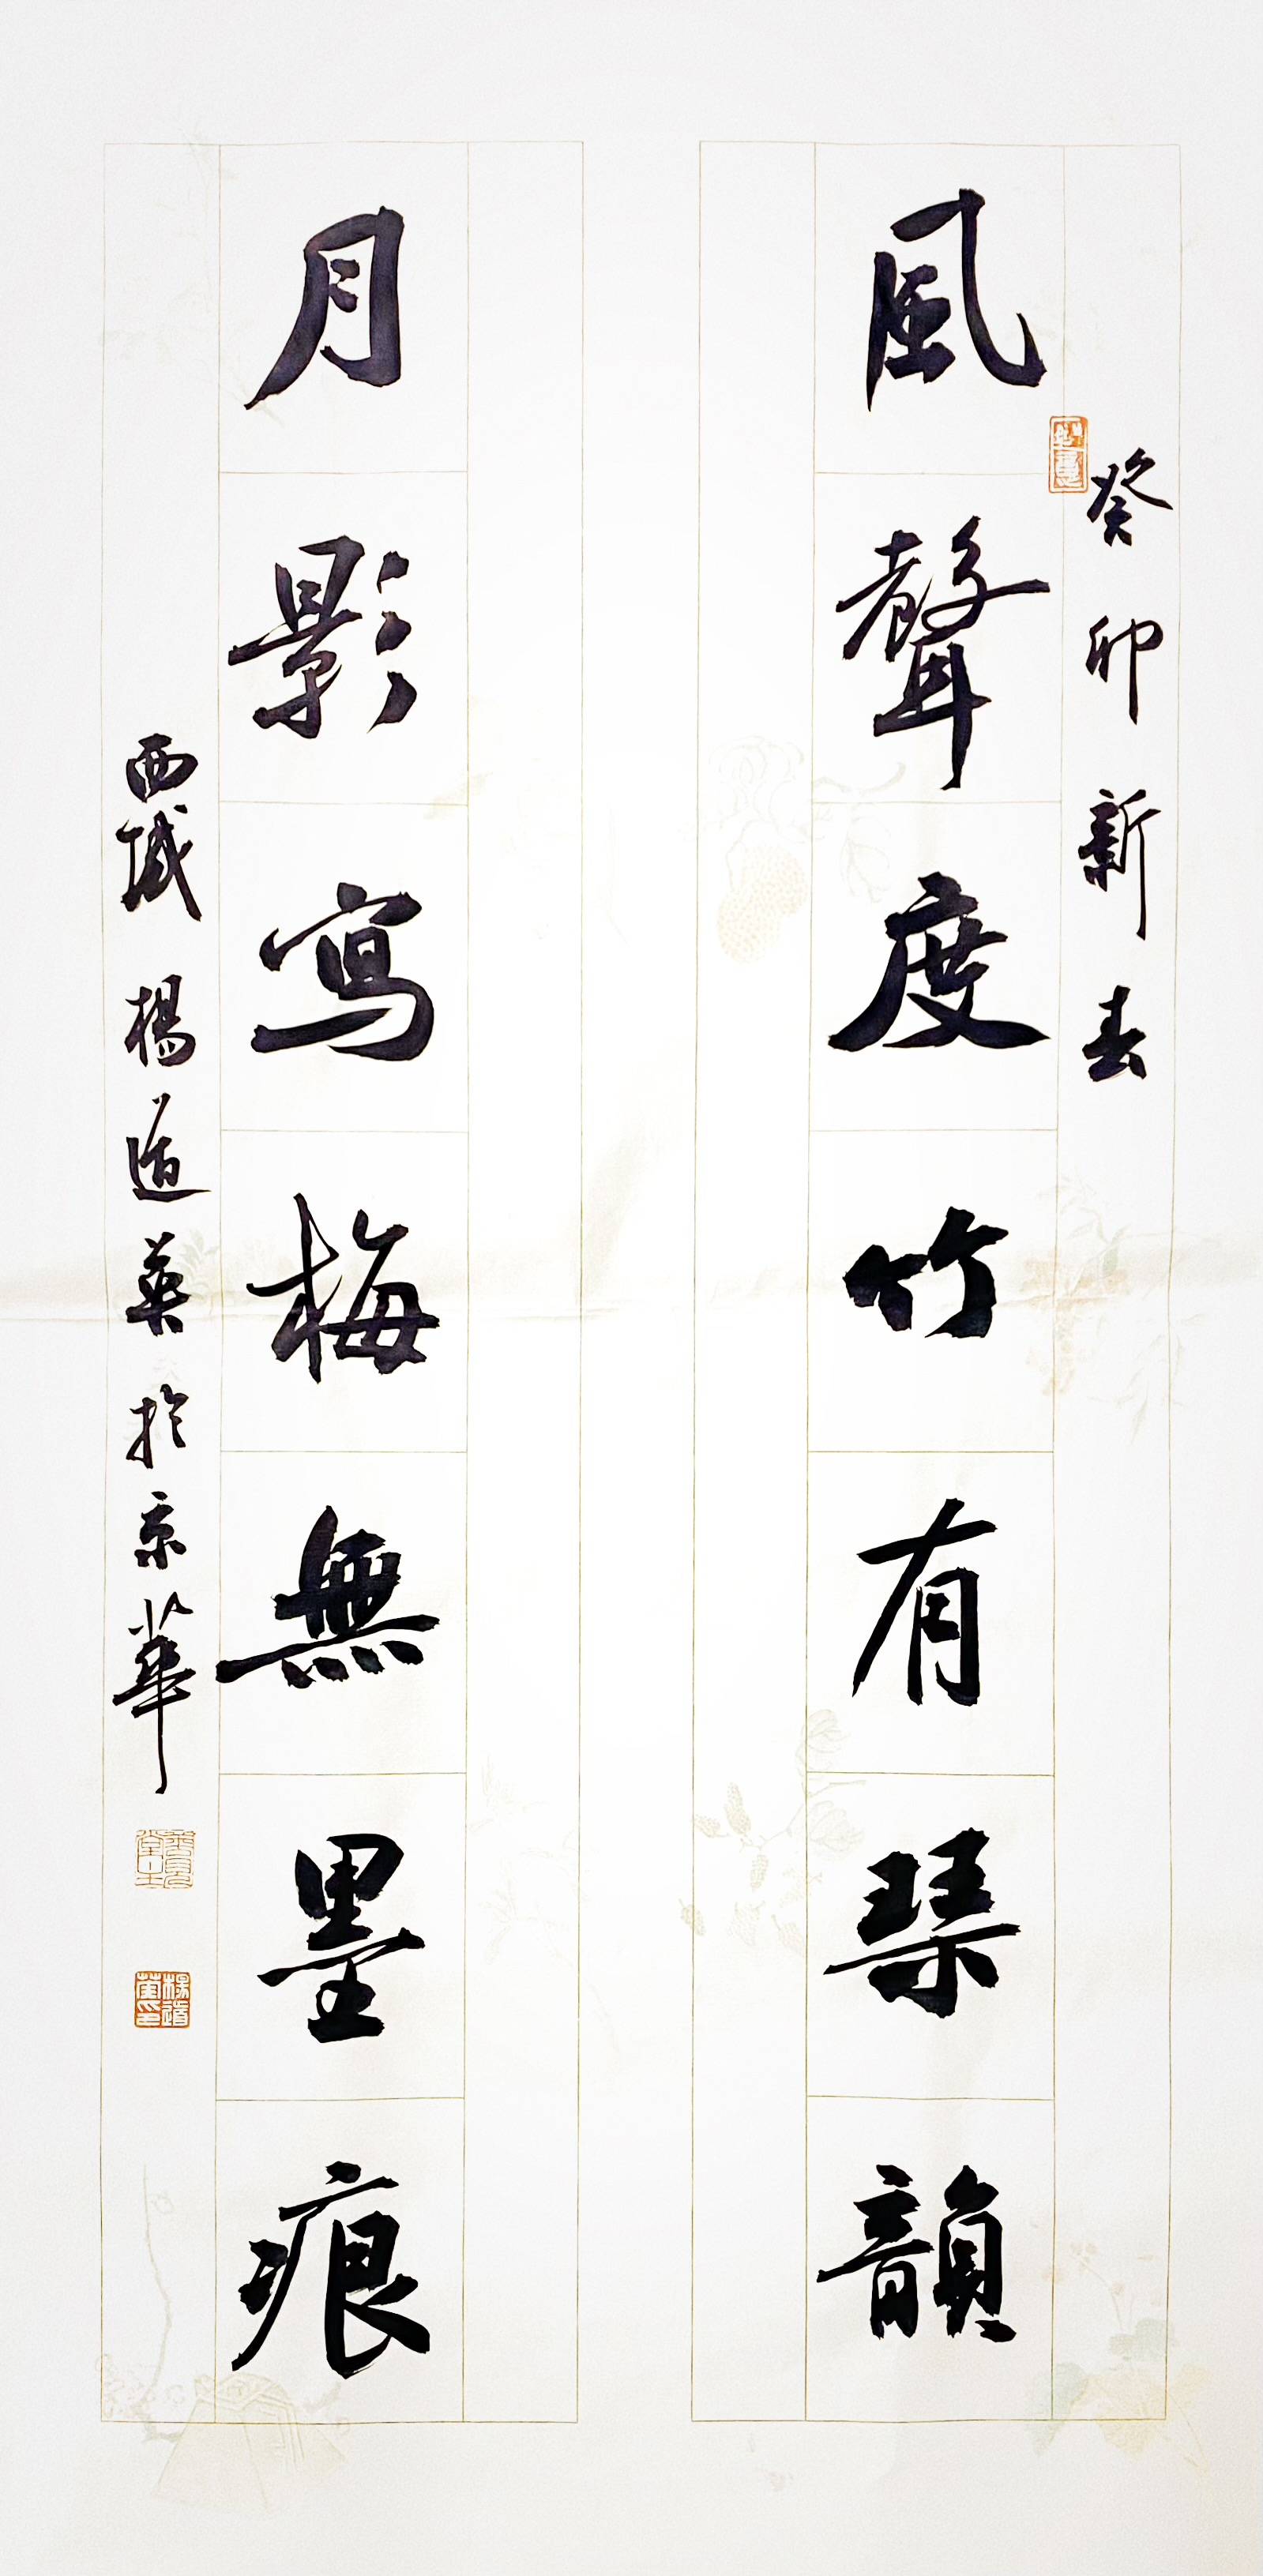 癸卯新春
風聲度竹有琴韻
月影寫梅無墨痕
西域楊道英於京華